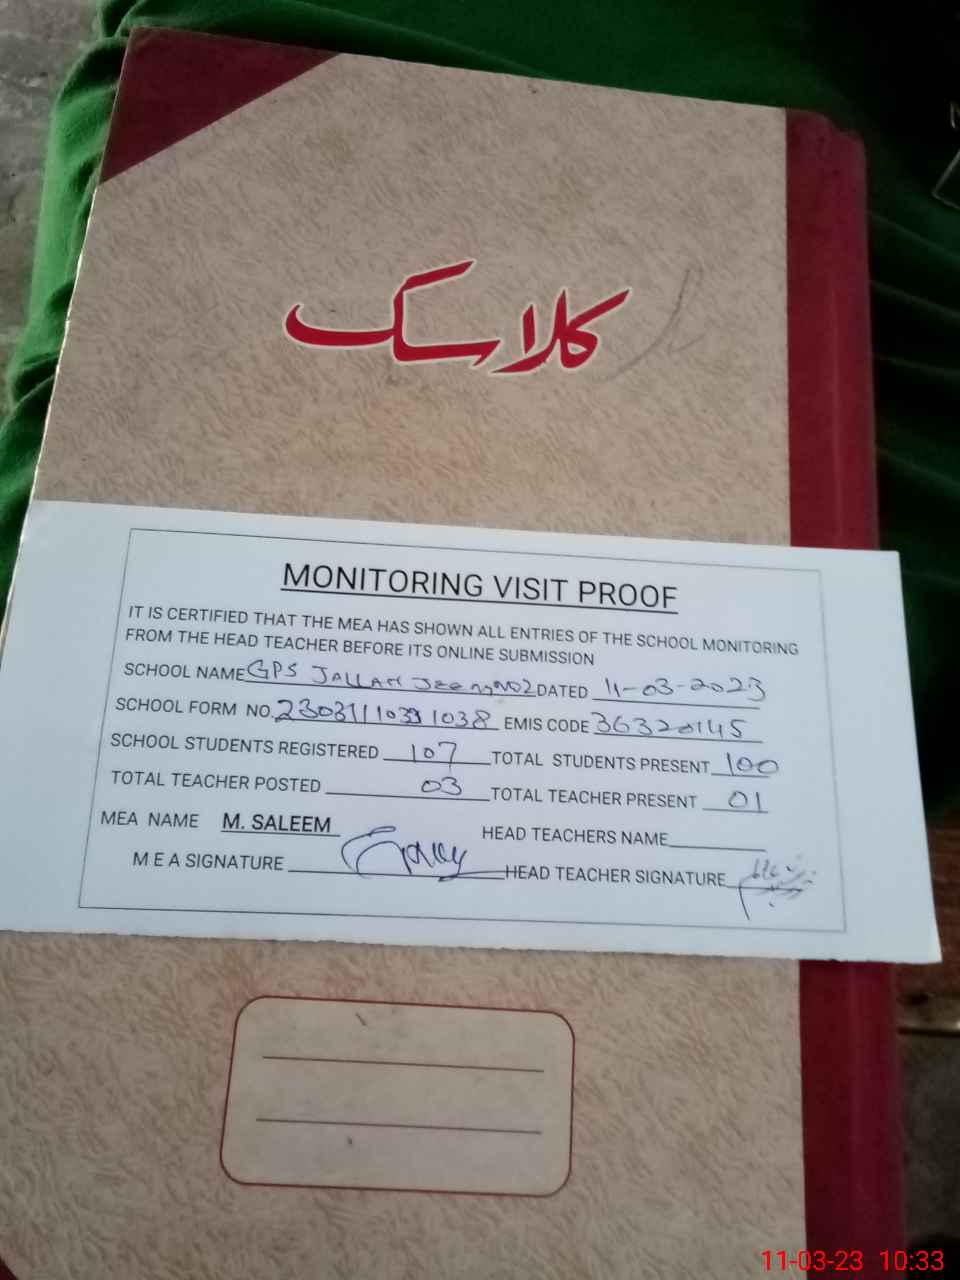 کلاسک
MONITORING VISIT PROOF
IT IS CERTIFIED THAT THE MEA HAS SHOWN ALL ENTRIES OF THE SCHOOL MONITORING
FROM THE HEAD TEACHER BEFORE ITS ONLINE SUBMISSION
SCHOOL NAME GPS JALLAH JEEM NO2 DATED 11-03-2023
SCHOOL FORM NO. EMIS CODE 36320145
SCHOOL STUDENTS REGISTERED 107 TOTAL STUDENTS PRESENT 100
TOTAL TEACHER POSTED 03 TOTAL TEACHER PRESENT 01
MEA NAME M. SALEEM HEAD TEACHERS NAME
M E A SIGNATURE HEAD TEACHER SIGNATURE
11-03-23 10:33